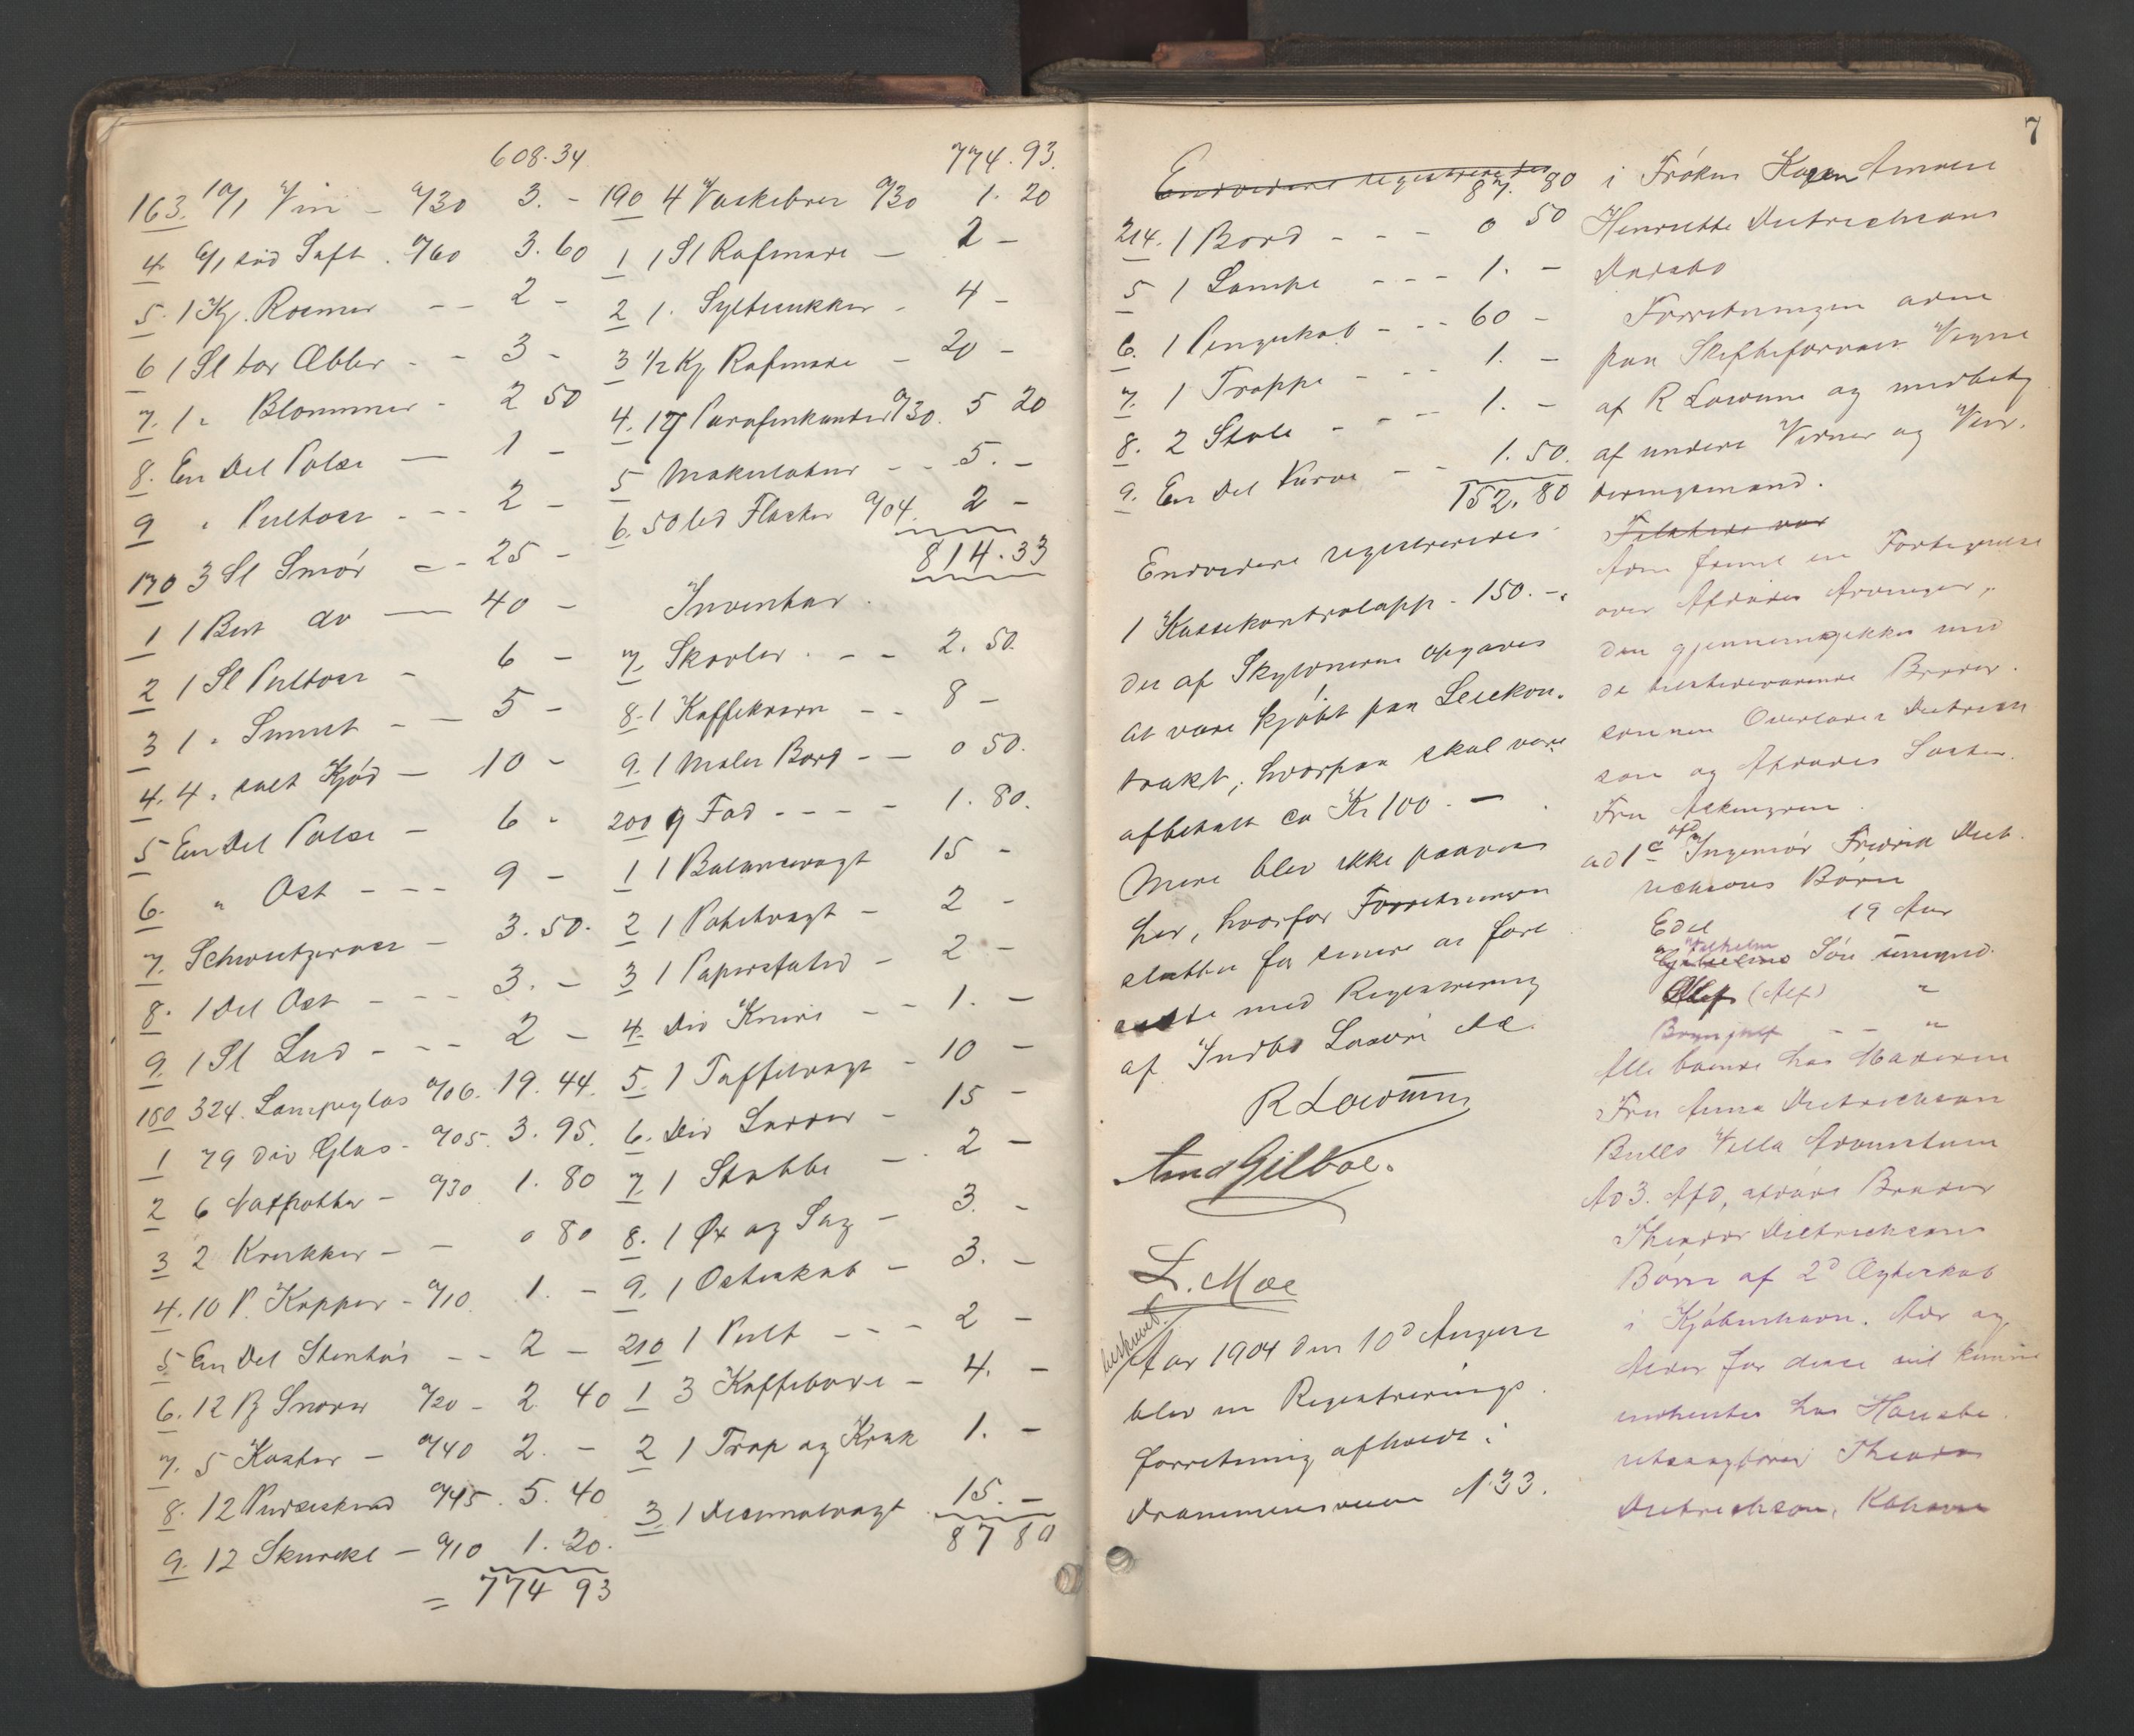 608.34
163. 10/1 Vin - a/30 3. -
4. 6/1 sød Saft . a/60 3.60
5. 1 Kg. Rosiner -- 2 -
6 1 Sl tør Æbler - - 3 -
7. 1 " Blommer - 2 50
8. En Del Pølse — 1 -
9 " Pultost - -- 2 -
170 3 Sl Smør - - 25 -
1 1 Bøt do — 40 -
2 1 Sl Pultost - 6 -
3 1 " - - 5 -
4. 4 " salt Kjød - 10 -
5 En Del Pølse - 6 -
6. " Ost - - - 9 -
7. Schweitzerost - 3.50.
8. 1 Del Ost - - - 3. -
9. 1 Sl Lud - - - 2 -
180 324. Lampeglas a/06. 19.44.
1 79 div Glas - a/05. 3.95.
2 6 Natpotter - a/30 1.80
3 2 Krukker - - 0 80
4. 10 P. Kopper - a/10 1. -
5. En Del Stentøi -- 2 -
6. 12 B Snorer a/20 - 2 40
7. 5 Koster - a/40 2. -
8. 12 a/45. 5.40
9. 12 - a/10 1.20.
= 774 93
774.93.
190 4 Vaskebrer a/30 1.20
1 1 Sl Rafinade — 2 -
2 1. Sylteukker - 4 -
3 1/2 Kg Rafinade - 20 -
4. 17 Parafinkander a/30. 5 20
5 Makulatur - - 5. -
6. 50 led Flasker a/04. 2 -
814.33
Inventar.
7. Skovler. - - 2.50.
8. 1 Kaffekvern - - 8 -
9. 1 malet Bord - - 0 50.
200 9 Fad - - - - 1.80.
1 1 Balancevægt 15 -
2 1 Pakelvægt - 2 -
3 1 Papirstativ - 2 -
4. Div Knive - - 1. -
5. 1 Taffelvægt - 10 -
6. Div - 15 -
7. 1 Stabbe - . 2 -
8. 1 Øx og Sag - 3. -
9. 1 Osteskab - 3. -
210 1 Pult - - - 2 -
1 3 - 4. -
2 1 Trap og Krak 1. -
3. 1 Decimalvægt 15. -
87 80
7
Endvidere registreredes
87. 80
214. 1 Bord - - - 0 50
5 1 Lampe - - - 1. -
6. 1 Pengeskab - - - 60 -
7. 1 Trappe - - - 1. -
8. 2 Stole - - - 1. -
9. En Del Kurve - - 1.50.
152.80
Endvidere registreredes
1 Kassekontrolapp. 150. -,
der af Skyldneren opgaves
at være kjøbt paa Leiekon.
trakt, hvorpaa skal være
afbetalt ca Kr 100. — .
Mere blev ikke paavist
her, hvorfor Forretningen
sluttes for senere at fort
sætte med Registrering
af Indbo Løsøre &c.
R Lowum
Amd Gilboe.
L. Moe
beskrevet.
Aar 1904 den 10d August
blev en Registrerings
forretning afholdt i
Drammensveien N. 33.
i Frøken Karen Amalie
Henriette Dietrichsons
Dødsbo
Forretningen adm
paa Skifteforvalt Vegne
af R Lowum og medbetj
af undert Vidner og Vur.
deringsmænd.
Tilstede var
Adm fremt en Fortegnelse
over Afdødes Arvinger,
den gjennemgikkes med
de tilstedeværende Broder.
sønnen Overlærer Dietrich
son og Afdødes Søster
Fru
ad 1ste afd Ingeniør Fredrik Diet.
richsons Børn
Edel 19 Aar
Vilhelm Søn umynd.
Olaf (Alf) "
Brynjulf - - "
Alle boende hos Moderen
Fru Anna Dietrichson
Bulls Villa
Ad 3. Afd, afdøde Broder
Theodor Dietrichsons
Børn af 2d Ægteskab
i Kjøbenhavn. Adr og
Alder for disse vil kunne
indhentes hos
Theodor
Dietrichson, Kbhavn